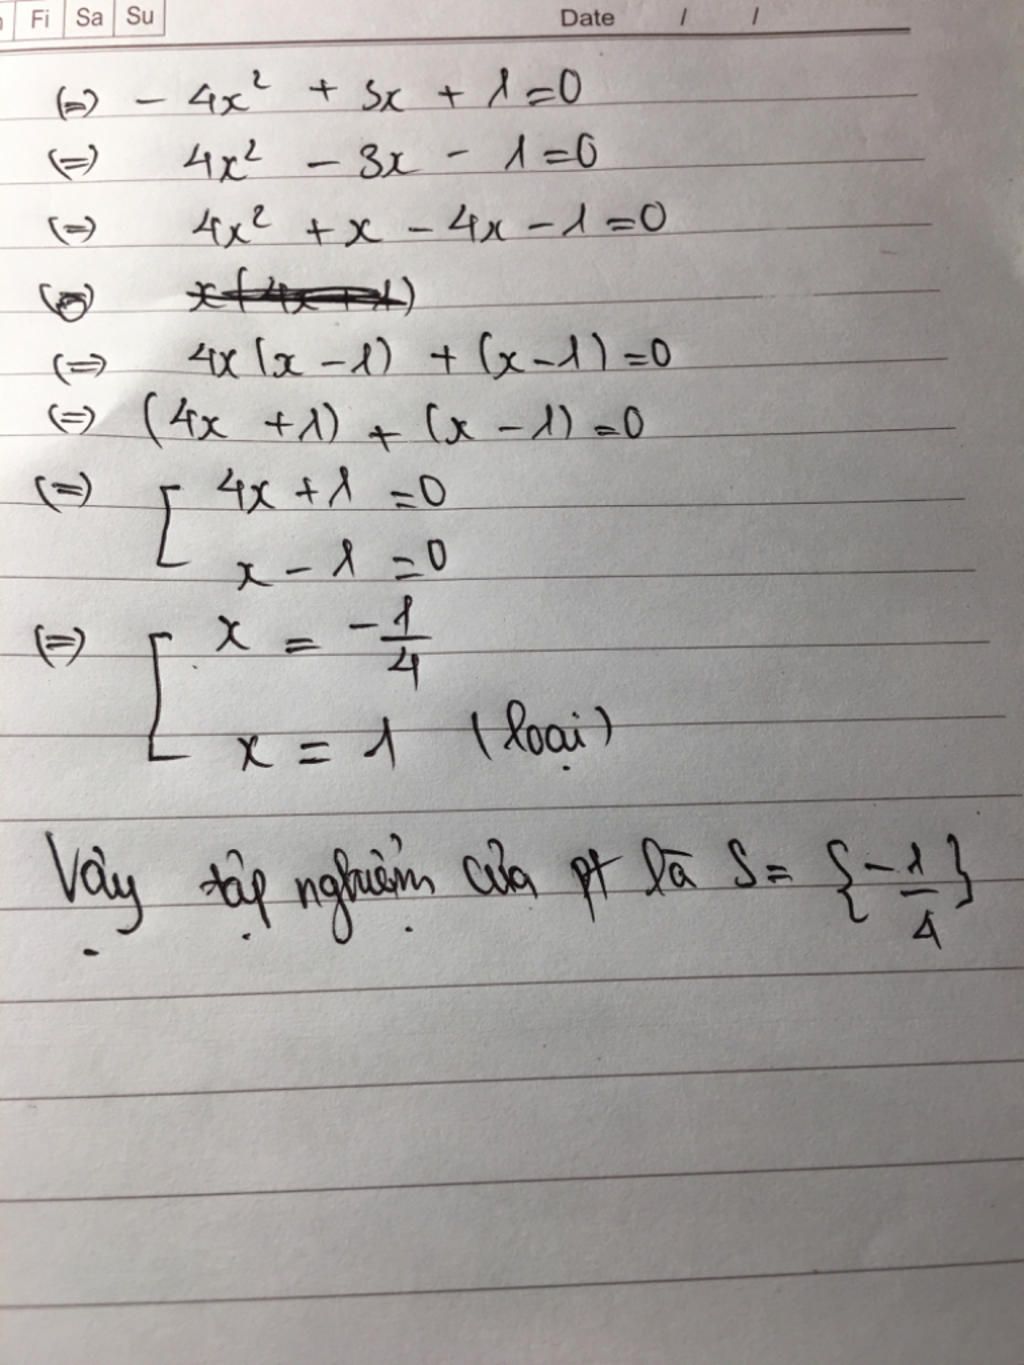 Fi Sa Su Date / /
(=) - 4x² + 3x + 1 = 0
(=) 4x² - 3x - 1 = 0
(=) 4x² + x - 4x - 1 = 0
(=) 4x(x - 1) + (x - 1) = 0
(=) (4x + 1) + (x - 1) = 0
(=) [ 4x + 1 = 0
x - 1 = 0
(=) [ x = -1/4
x = 1 (loại)
Vậy tập nghiệm của pt là S = {-1/4}